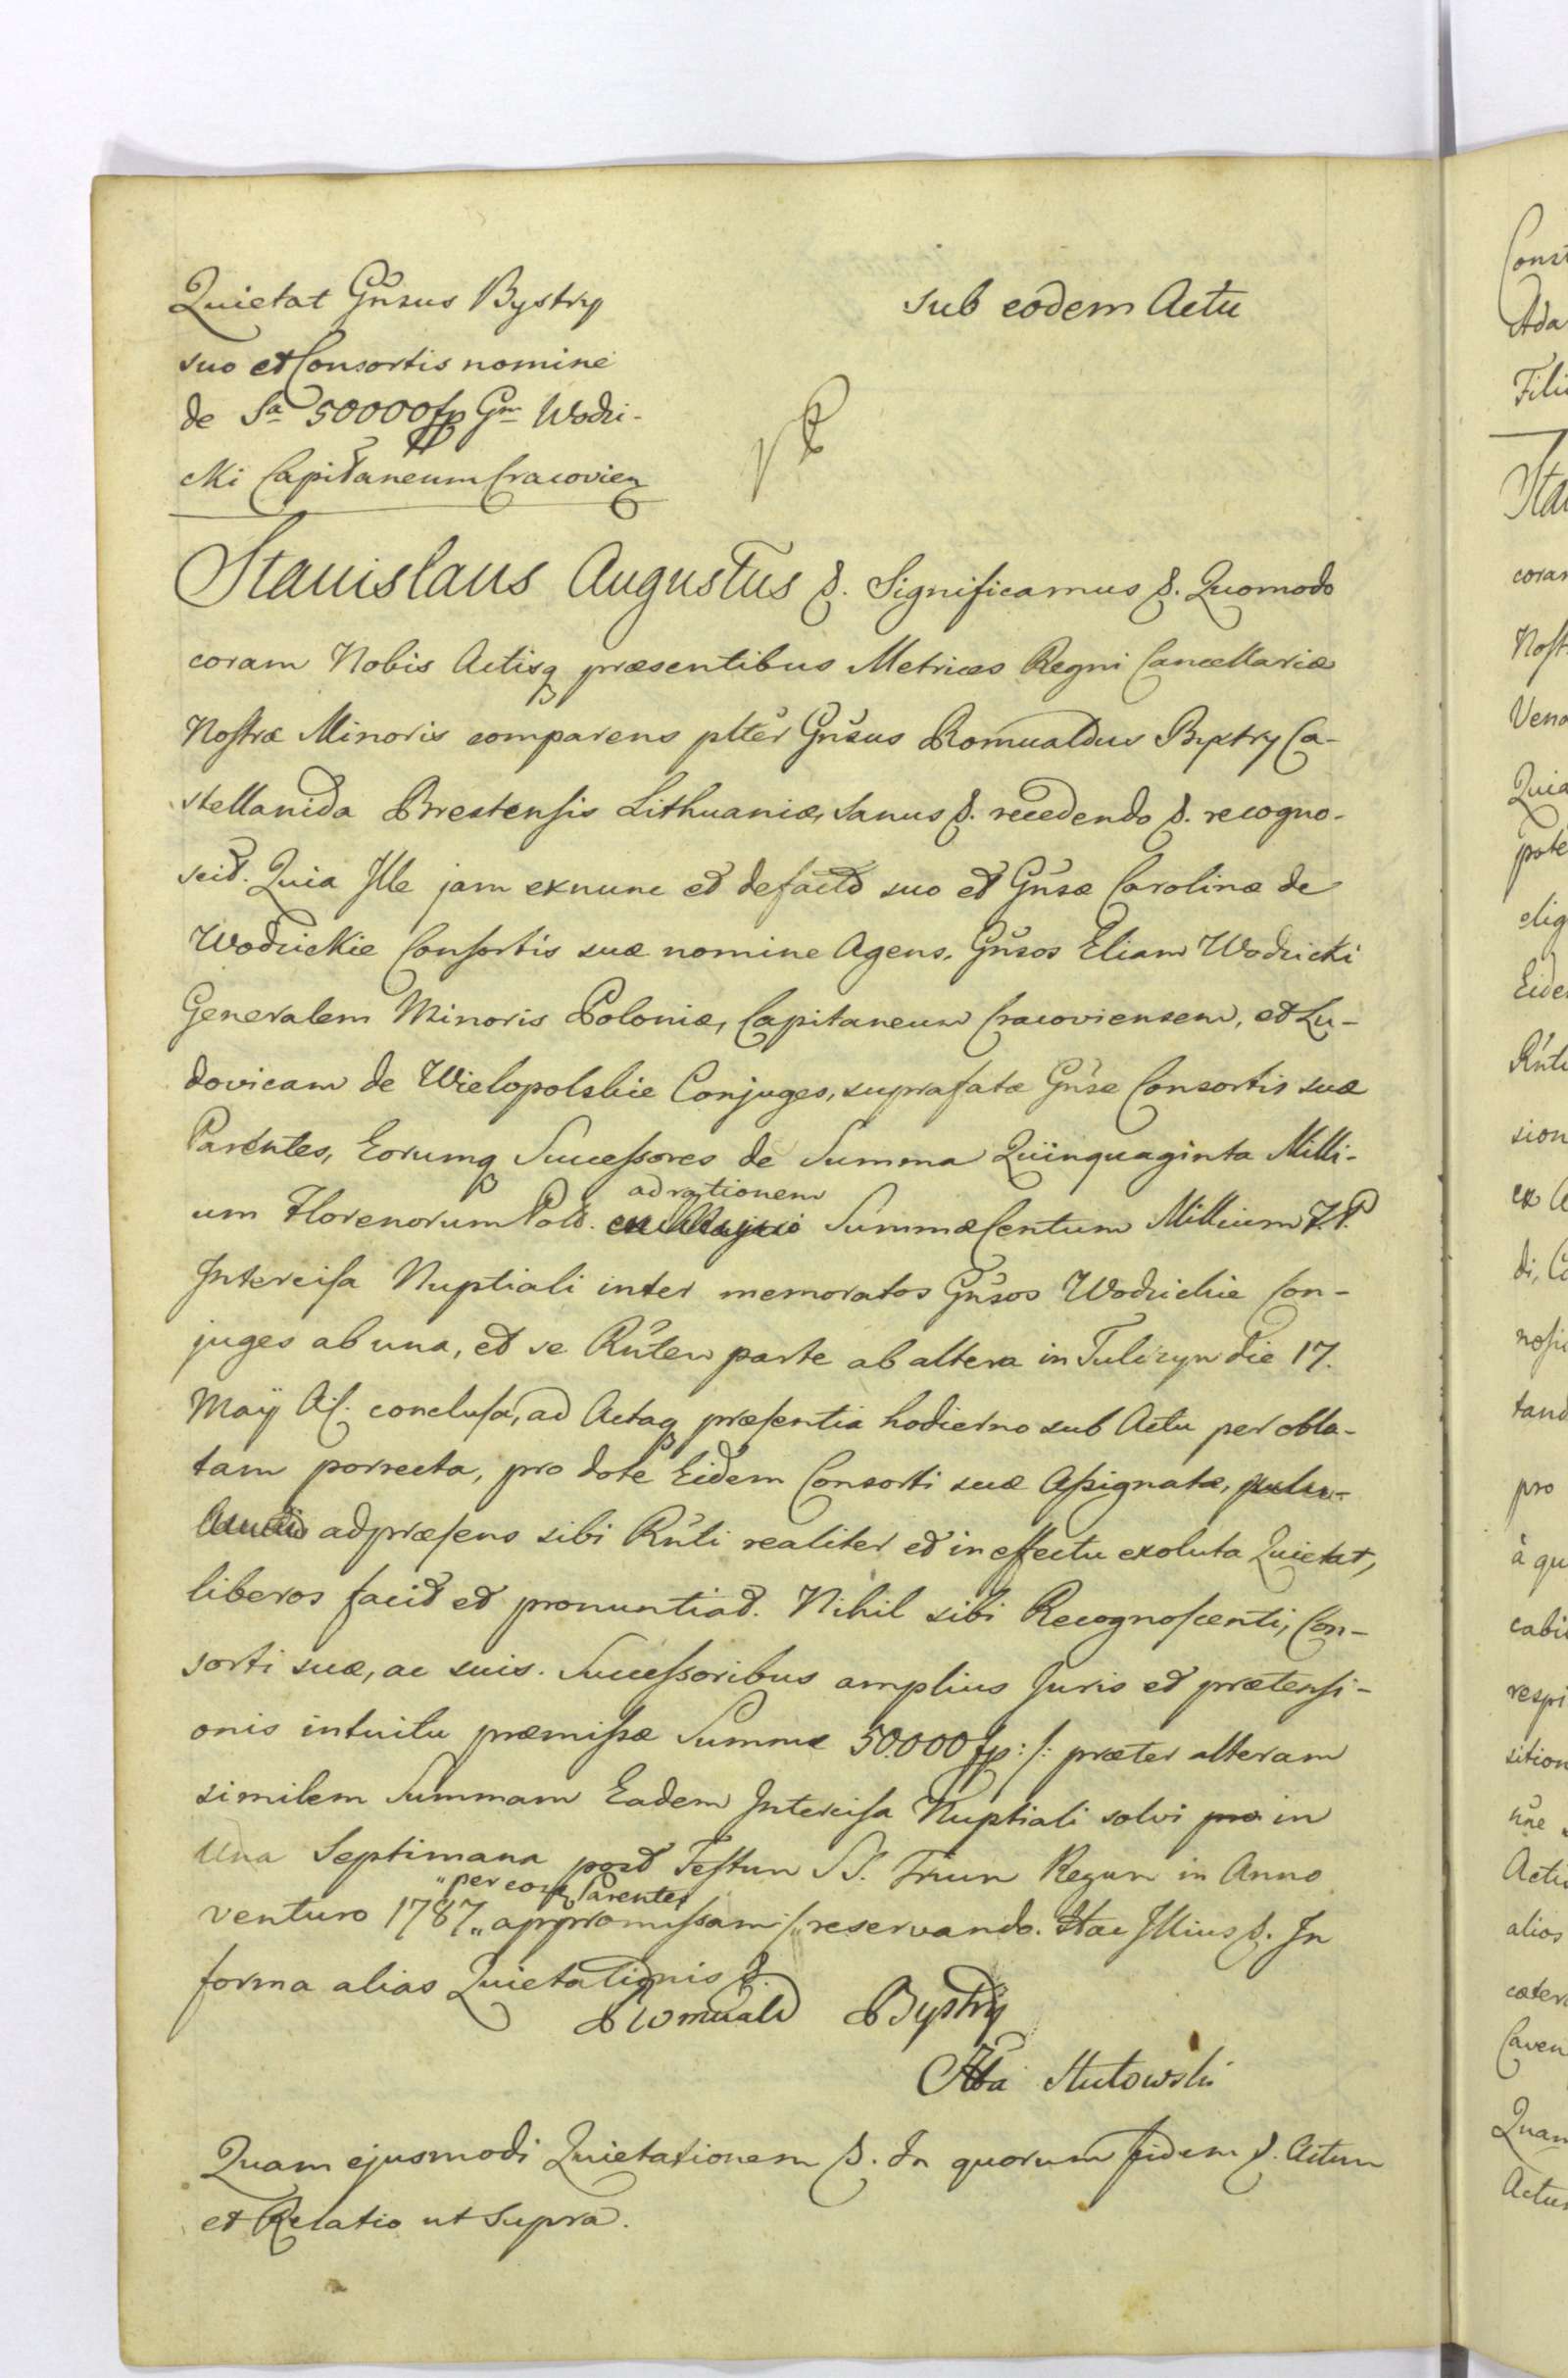 Quietat Gnsus Bystry
suo et Consortis nomine
de Sa 50000 fp Gm Wodzi-
cki Capitaneum Cracovien
sub eodem Actu
Stanislaus Augustus &. Significamus &. Quomodo
coram Nobis Actisq præsentibus Metrices Regni Cancellariæ
Nostræ Minoris comparens plter Gnsus Romualdus Bystry Ca-
stellanida Brestensis Lithuaniæ, sanus &. recedendo &. recogno-
scit. Quia Ille jam exnunc et defacto suo et Gnsæ Carolinæ de
Wodzickie Consortis suæ nomine Agens. Gnsos Eliam Wodzicki
Generalem Minoris Poloniæ, Capitaneum Cracoviensem, et Lu-
dovicam de Wielopolskie Conjuges, suprafatæ Gnsæ Consortis suæ
Parentes, Eorumq Successores de Summa Quinquaginta Milli-
ad rationem
um Florenorum Pold. Summæ Centum Millium F.P.
Intercisa Nuptiali inter memoratos Gnsos Wodzickie Con-
juges ab una, et se Rntem parte ab altera in Tulczyn die 17.
Maÿ A.C. conclusa, ad Actaq præsentia hodierno sub Actu per obla-
tam porrecta, pro dote Eidem Consorti suæ Assignatæ,
ad præsens sibi Rnti realiter et in effectu exoluta Quietat,
liberos facit et pronuntiat. Nihil sibi Recognoscenti, Con-
sorti suæ, ac suis. Successoribus amplius Juris et prætensi-
onis intuitu præmissæ Summæ 50.000 fp: /: præter alteram
similem Summam Eadem Intercisa Nuptiali solvi pro in
Una Septimana post Festum SS. Trium Regum in Anno
"per eosq Parentes
venturo 1787 " appromissam :/ reservando. Hac Illius &. In
forma alias Quietationis &.
Romuald Bystry
Stutowski
Quam ejusmodi Quietationem &. In quorum fidem &. Actum
et Relatio ut supra.
Const
Ada
Fili
Sta
coram
Nost
Vene
Quia
pote
elig
Eide
Rnti
sion
ex A
di, C
nosi
tand
pro
à qu
cabi
respi
sition
une
Actis
alios
cæter
Caven
Quam
Actu